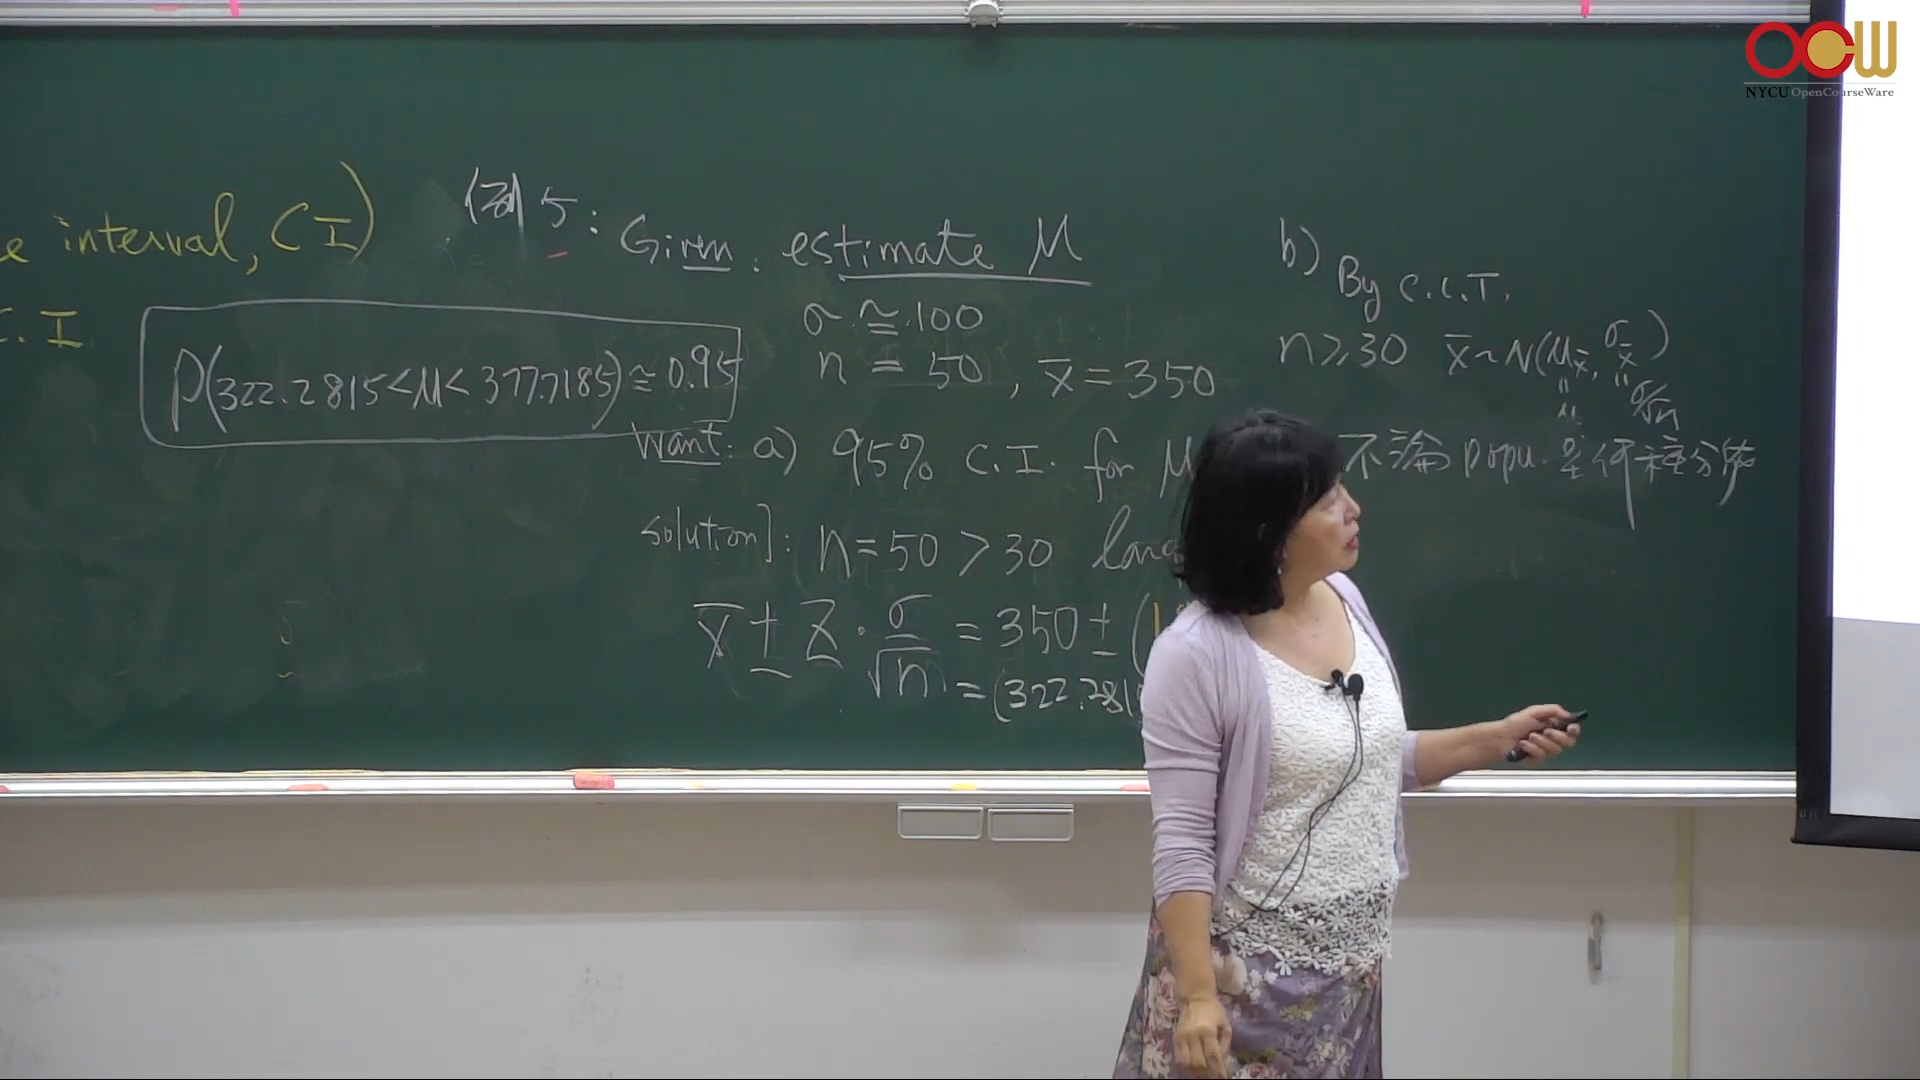 OCW
NYCU OpenCourseWare
e interval, CI)
C.I
P(322.2815<μ<377.7185)≅0.95
例5:
Given: estimate μ
σ ≅ 100
n = 50, x̄ = 350
Want: a) 95% C.I. for μ
solution]: n=50 > 30
x̄ ± Z · σ/√n = 350 ± (1
= (322.281
b) By C.L.T.
n≥30 x̄ ~ N(μx̄, σx̄)
" "
μ σ/√n
不論 popu. 是何種分佈